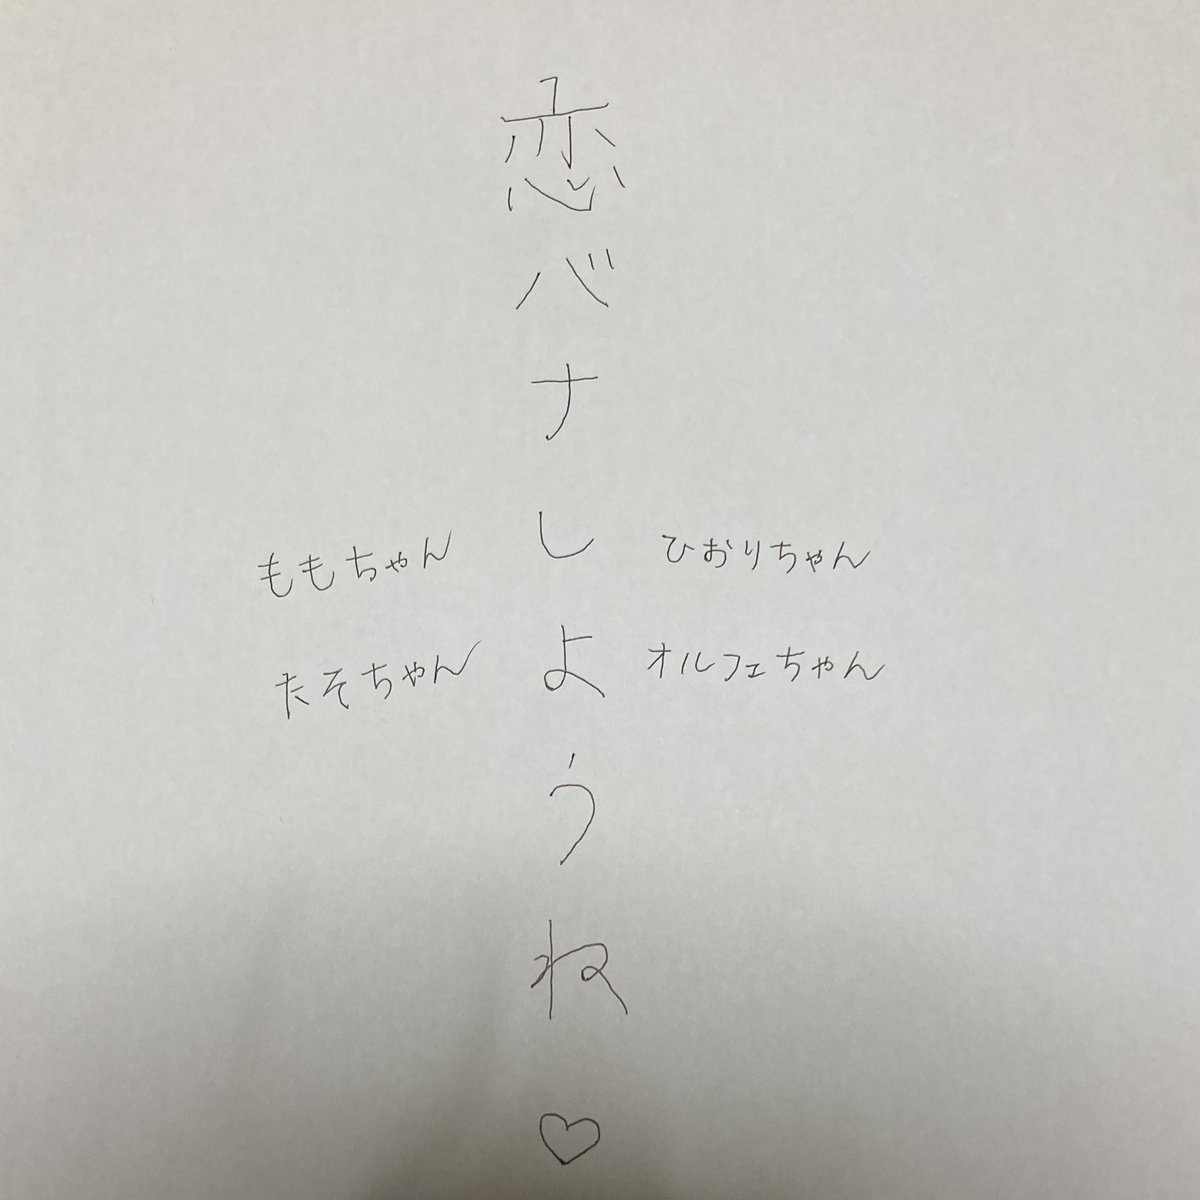 恋バナしようね♡
ひおりちゃん
オルフェちゃん
ももちゃん
たそちゃん